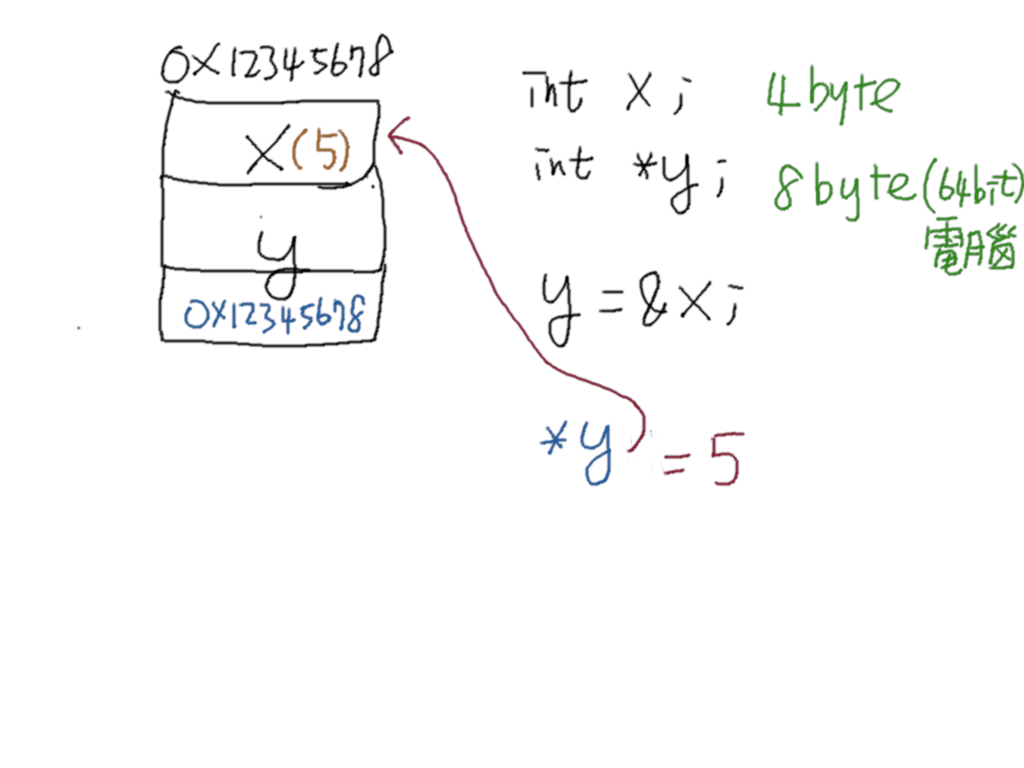 0X12345678
X(5)
y
0X12345678
int X; 4byte
int *y; 8byte(64bit)
電腦
y=&X;
*y =5